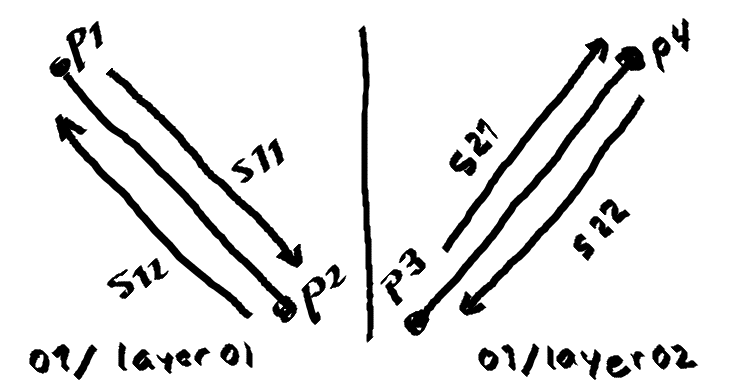 P1
S11
S12
P2
01/layer01
P4
S21
S22
P3
01/layer02